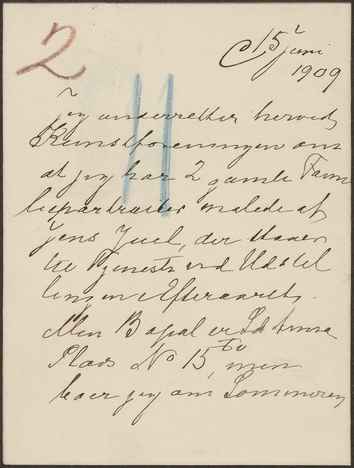 2
15 juni
1909
11
Jeg underretter herved
Kunstforeningen om
at jeg har 2 gamle Fam
lieportraiter malede af
Jens Juel, der staaer
til Tjeneste ved Udstil
lingen Efteraaret.
Min Bopæl er St Anna
Plads No 15 men
boer jeg om Sommeren